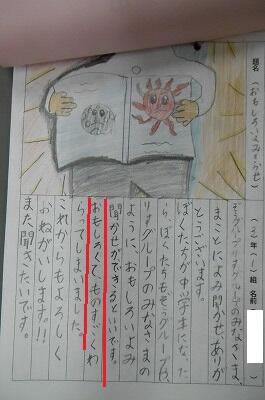 題名(おもしろいよみきかせ)
(3)年(1)組 名前
ぞうグループりすグループのみなさま、
まことによみ聞かせありが
とうございます。
ぼくたちが中い学年になった
ら、ぼくたちもぞうグループ、
りすグループのみなさまの
ように、おもしろいよみ
聞かせができるといいです。
おもしろくて、ものすごくわ
らってしまいました。
これからもよろしく
おねがいします!!
また聞きたいです。